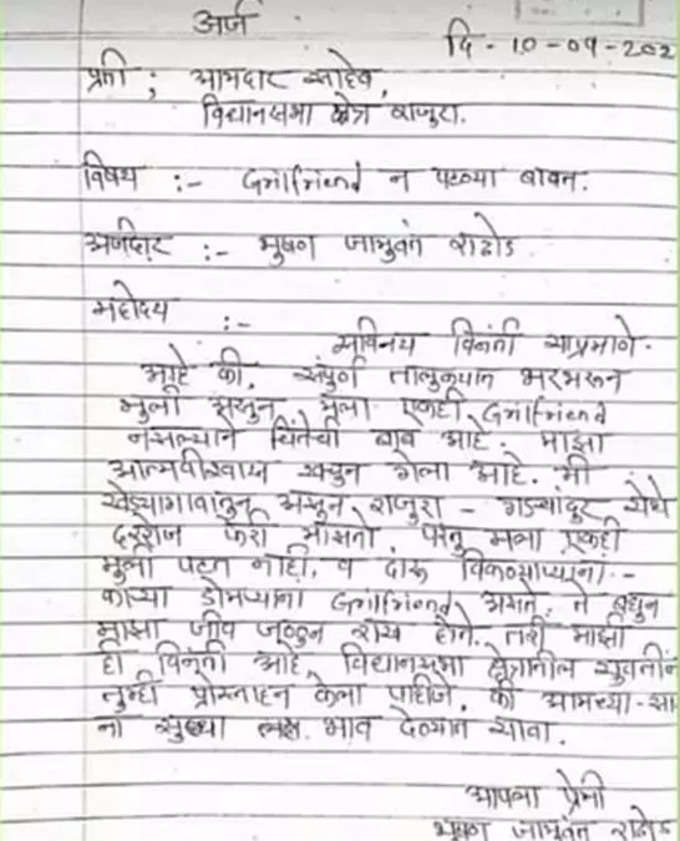 अर्ज
दि - 10-09-202
प्रती ; आमदार साहेब,
विधानसभा क्षेत्र राजुरा.
विषय :- Grilfriend न पटल्या बाबत.
अर्जदार :- भुषण जामुवंत राठोड
महोदय :-
सविनय विनंती याप्रमाणे.
आहे की, संपुर्ण तालुक्यात भरभरून
मुली असुन मला एकही Grilfriend
नसल्याने चिंतेची बाब आहे. माझा
आत्मवीश्वास खचुन गेला आहे. मी
खेड्यागावातुन असुन राजुरा - गडचांदुर येथे
दररोज फेरी मारतो परंतु मला एकही
मुली पटत नाही, व दारू विकणाऱ्यांना -
काऱ्या डोमळ्यांना Grilfriend असते. ते बघुन
माझा जीव जळुन राख होते. तरी माझी
ही विनंती आहे, विधानसभा क्षेत्रातील युवतींन
तुम्ही प्रोत्साहन केला पाहीजे, की आमच्या-सा
ना सुध्धा भाव देण्यात यावा.
आपला प्रेमी
भुषण जामुवंत राठोड